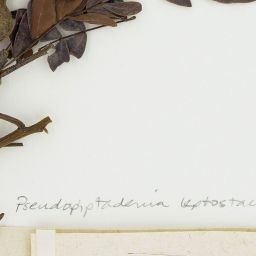 Pseudopiptadenia leptostac